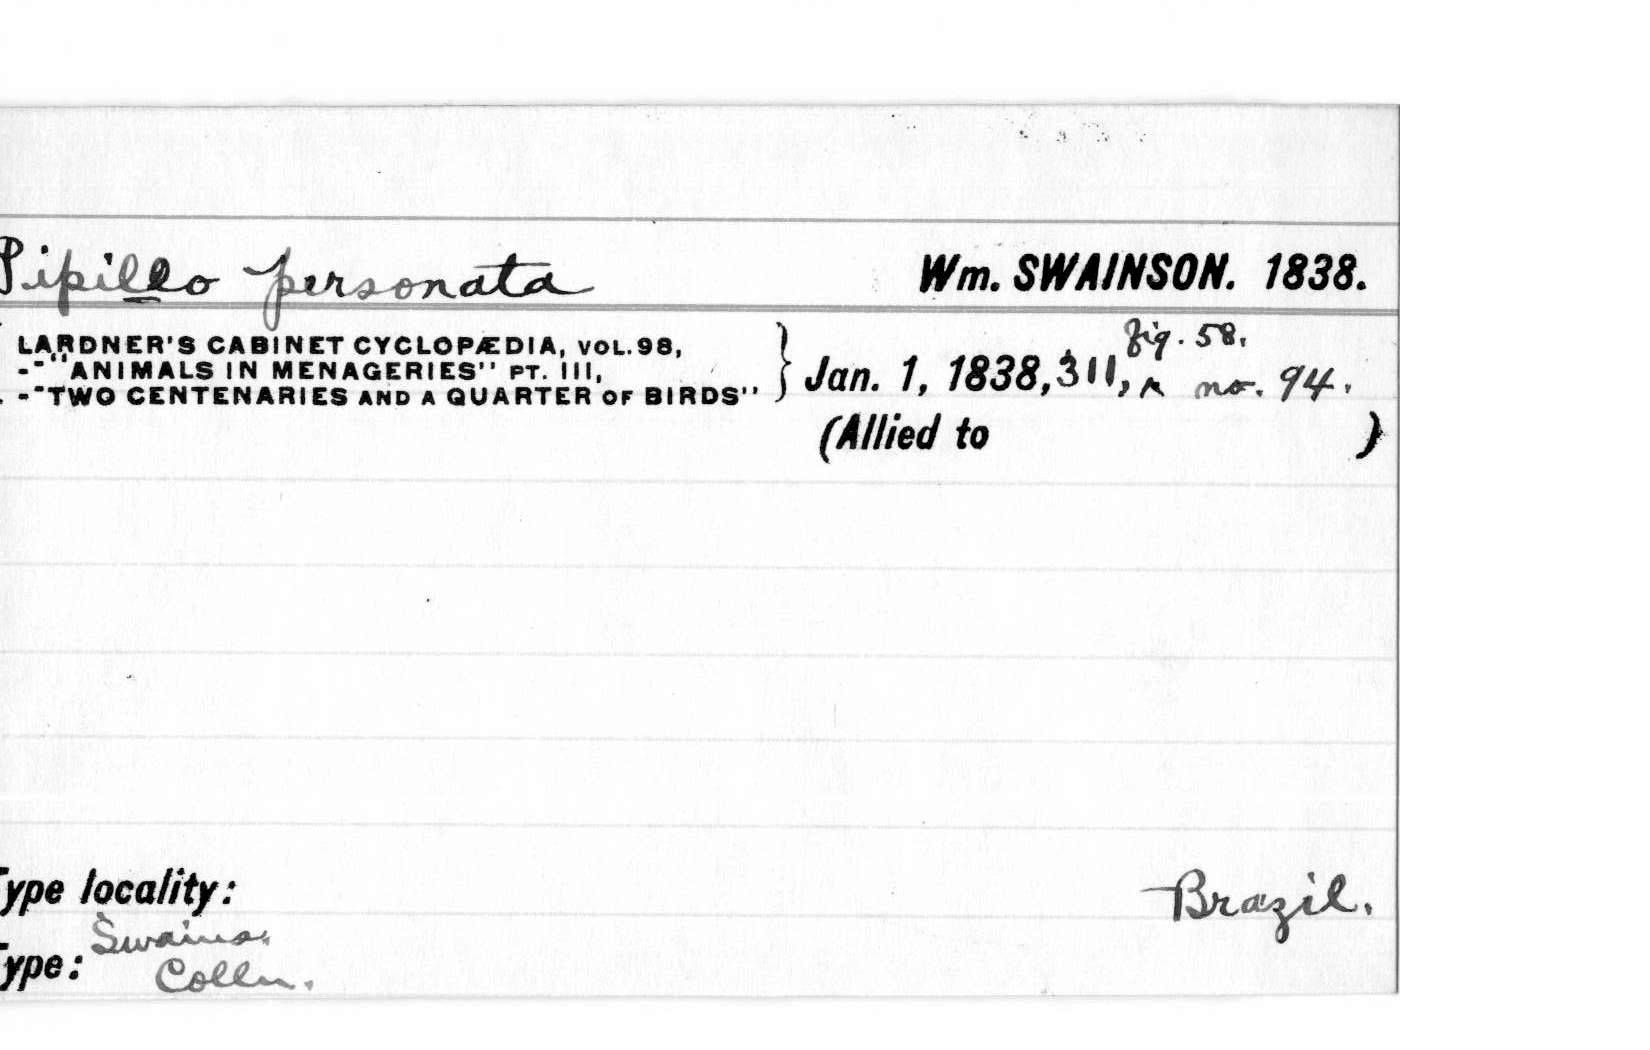 Pipillo personata Wm. SWAINSON. 1838.
LARDNER'S CABINET CYCLOPÆDIA, VOL.98,
--"ANIMALS IN MENAGERIES" PT. III,
--"TWO CENTENARIES AND A QUARTER OF BIRDS"
} Jan. 1, 1838, 311, ^ fig. 58. no. 94.
(Allied to )
Type locality: Brazil.
Type: Swains.
Colln.